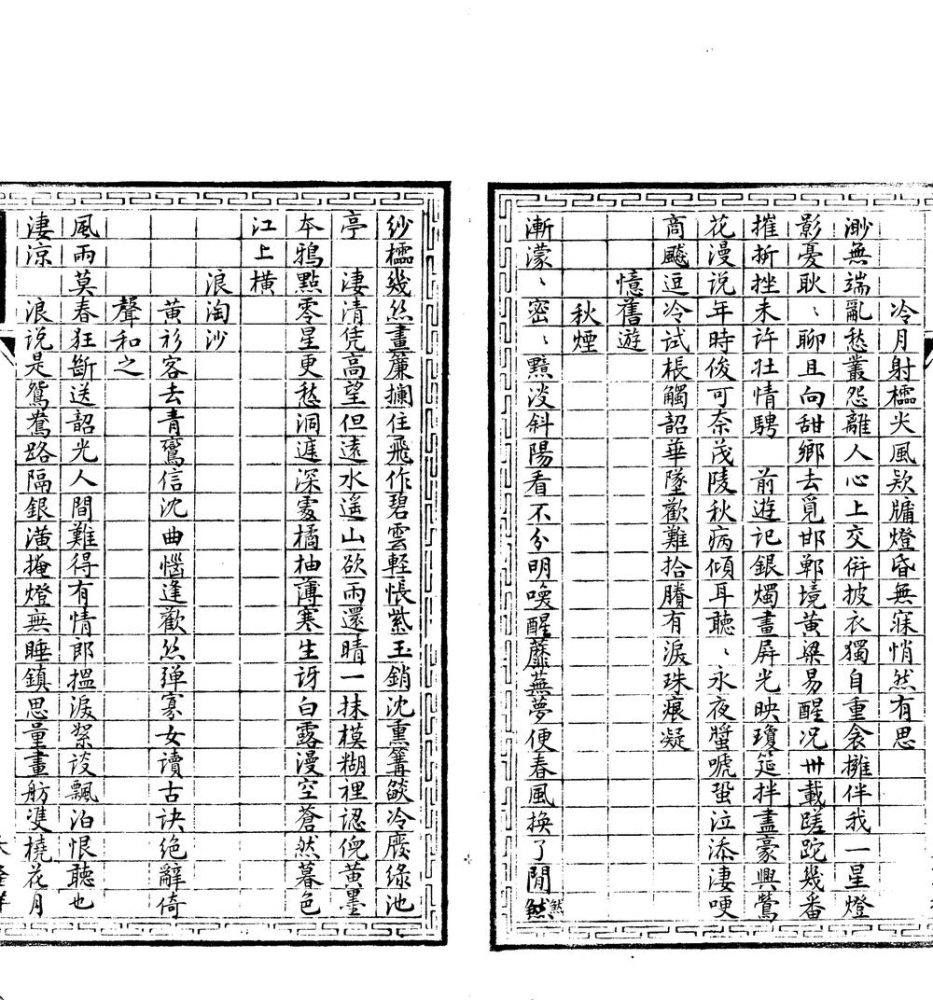 冷月射櫺尖風欵牗燈昏無寐悄然有思
渺無端亂愁叢怨離人心上交倂披衣獨自重衾擁伴我一星燈
影憂耿、聊且向甜鄉去覓邯鄲境黃粱易醒况卅載蹉跎幾番
摧折挫未許壯情騁　前遊記銀燭畫屏光映瓊筵拌盡豪興鶯
花漫說年時俊可奈茂陵秋病傾耳聽、永夜螿嗁蛩泣添淒哽
商飇逗冷試棖觸韶華墜歡難拾賸有淚珠痕凝
憶舊遊
秋煙
漸濛、密、黯淡斜陽看不分明喚醒蘼蕪夢便春風換了閒然
紗櫺幾絲畫簾攔住飛作碧雲輕悵紫玉銷沈熏篝燄冷廢綠池
亭　淒清凭高望但遠水遥山欲雨還晴一抹模糊裡認倪黃墨
本鴉點零星更愁洞遮深處橘柚薄寒生訝白露漫空蒼然暮色
江上橫
浪淘沙
黃衫客去青鸞信沈曲惱逢歡絲彈寡女讀古訣絕辭倚
聲和之
風雨莫春狂斷送韶光人間難得有情郎搵淚褩談飄泊恨聽也
淒涼　浪說是鴛鴦路隔銀潢掩燈無睡鎮思量畫舫雙橈花月